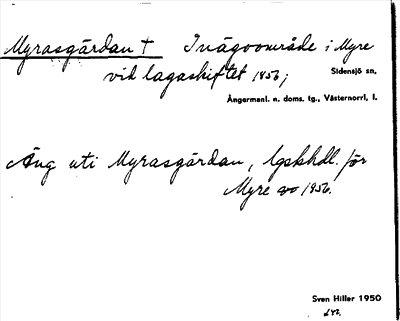 Myrasgärdan † Inägoområde i Myre
vid lagaskiftet 1856;
Sidensjö sn,
Ångermanl. n. doms. tg., Västernorrl. l.
Äng uti Myrasgärdan, lgskhdl. för
Myre 1856.
Sven Hiller 1950